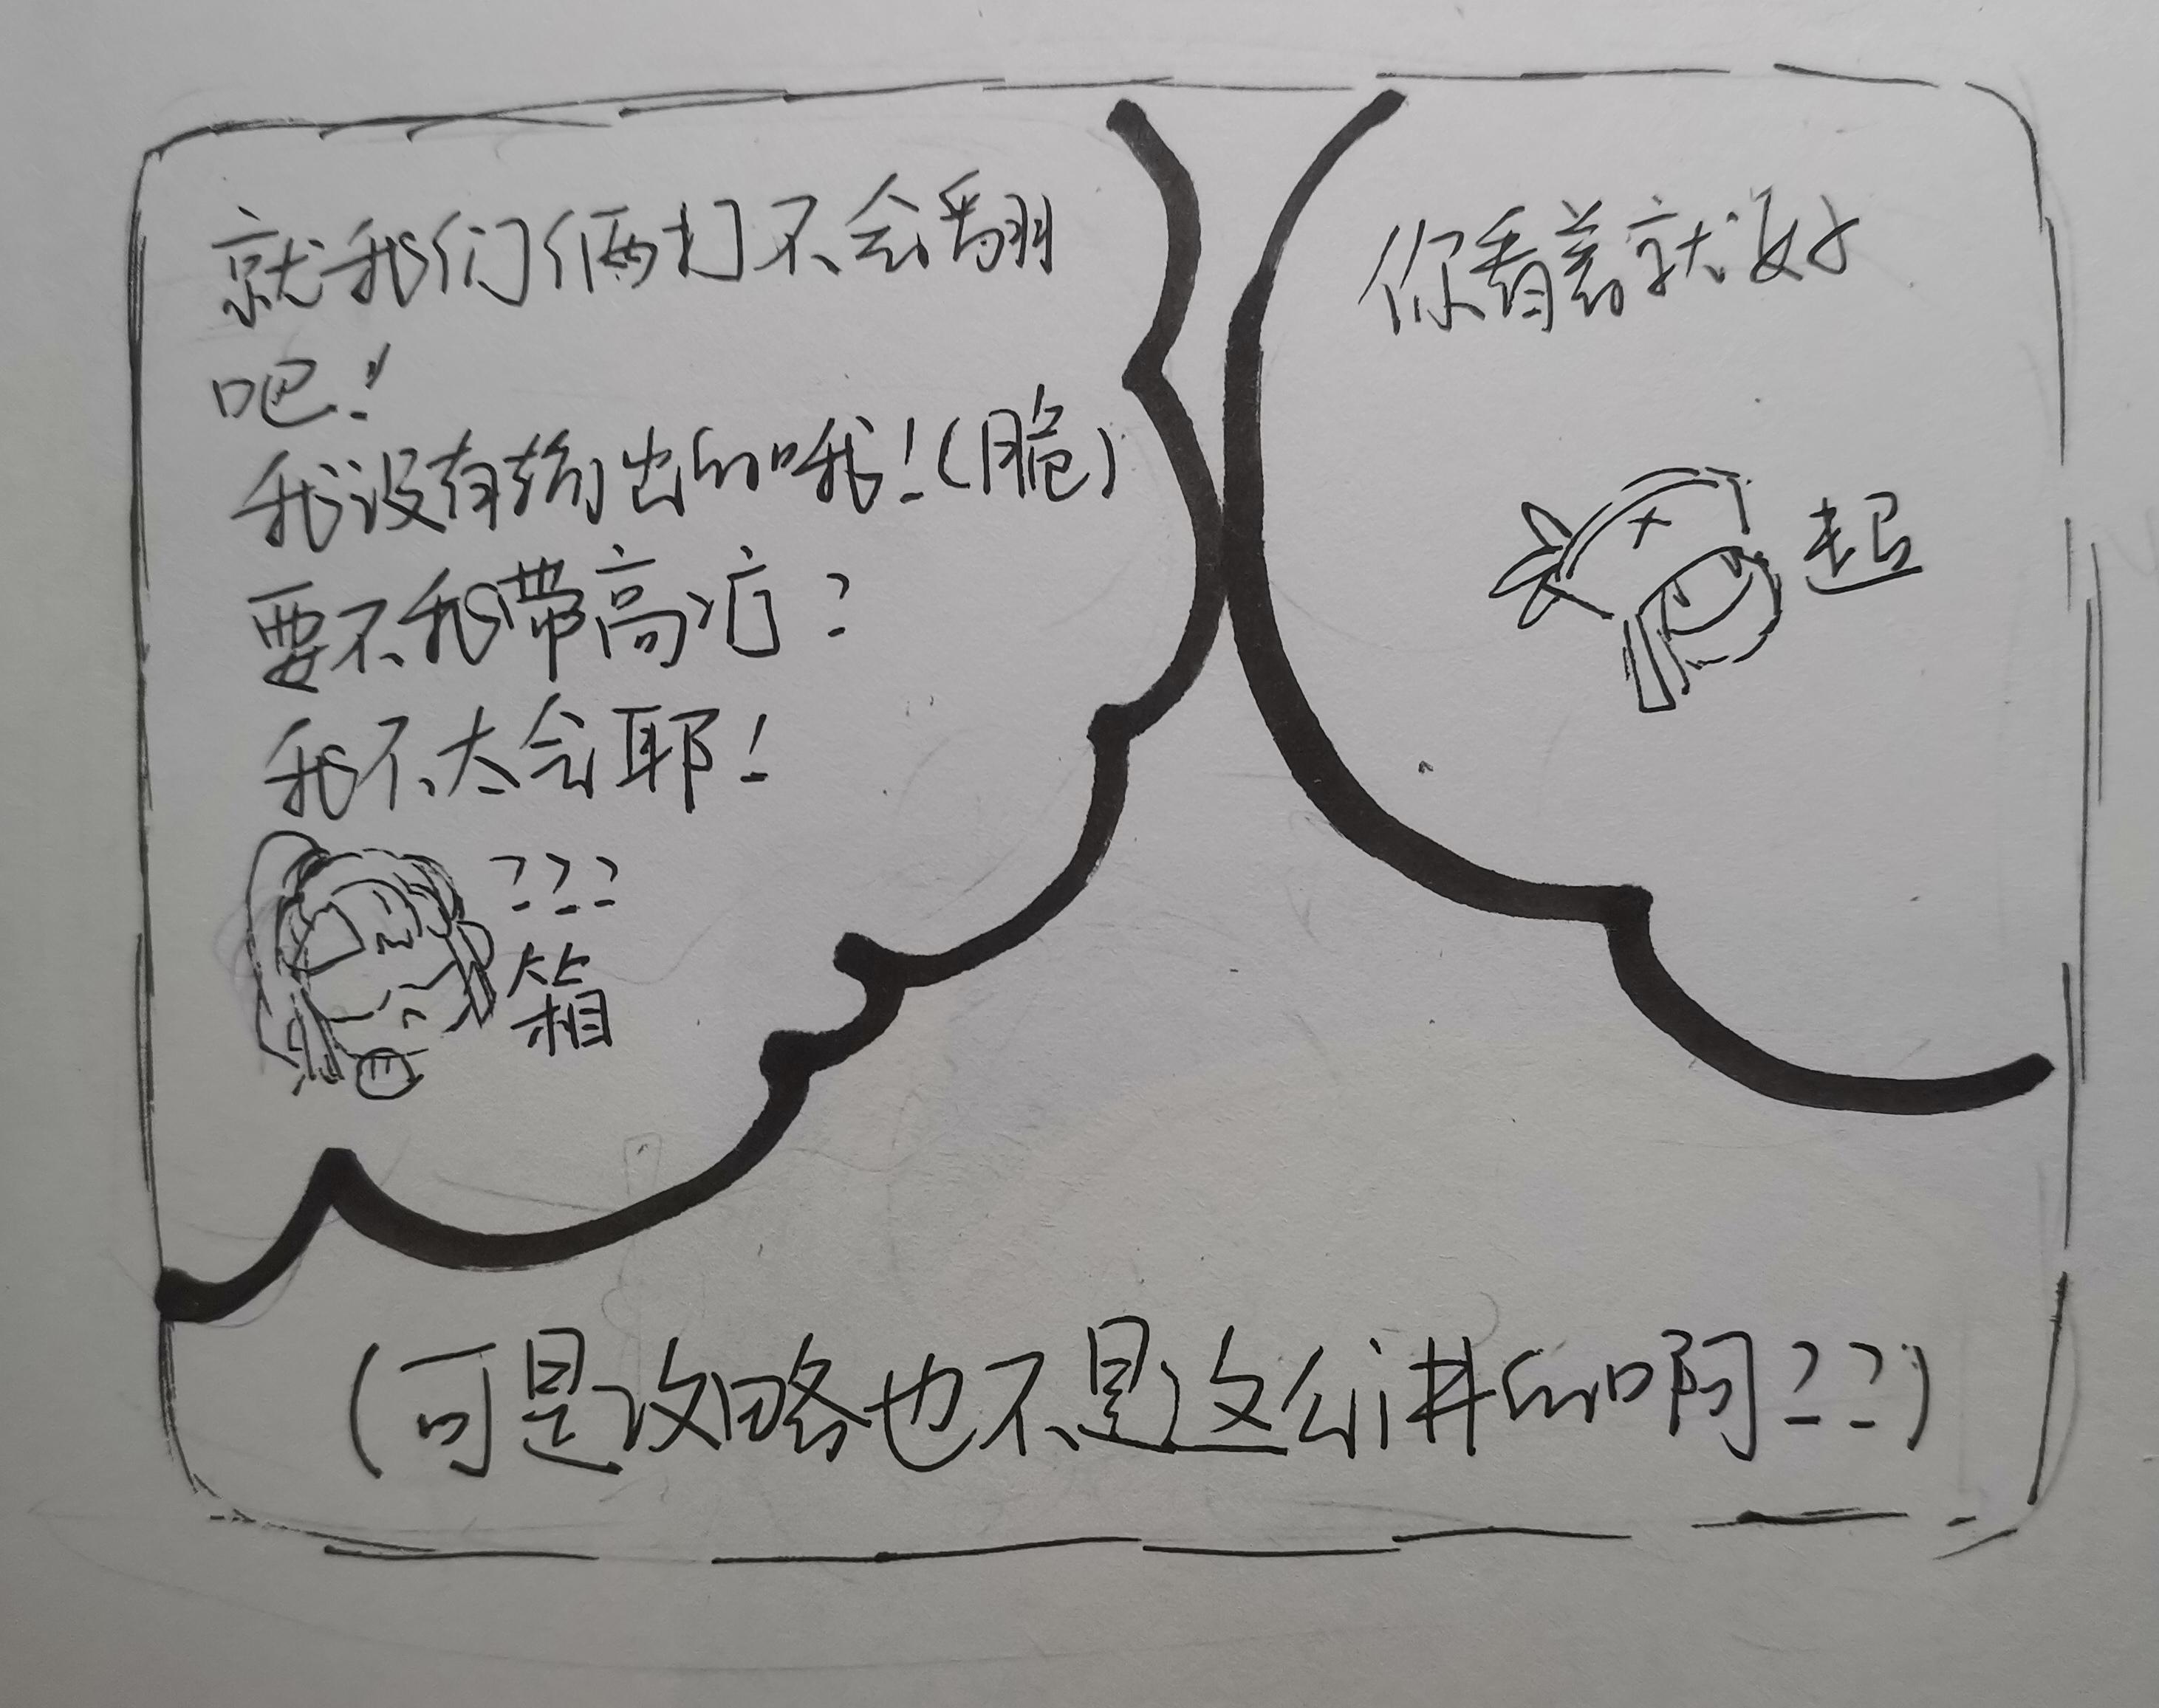 就我们俩打不会翻
吧!
我没有输出的哦!(脆)
要不我带高疗?
我不太会耶!
???
箱
你看着就好
起
(可是攻略也不是这么讲的啊???)